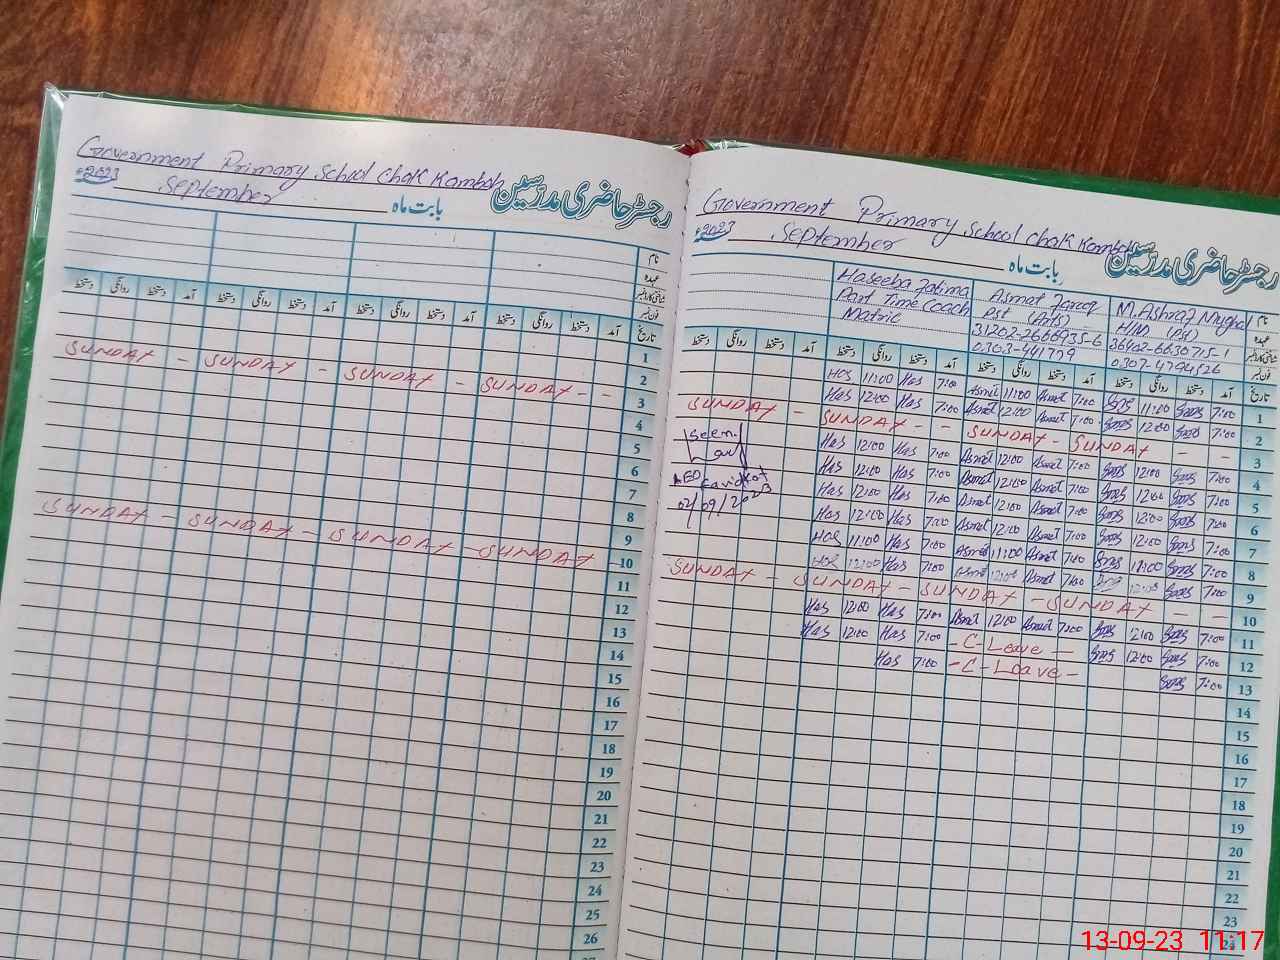 Government Primary School Chak Kamboh
رجسٹر حاضری مدرسین
2023
September
بابت ماہ
نام
عہدہ
شناختی کارڈ نمبر
فون نمبر
دستخط روانگی دستخط آمد دستخط روانگی دستخط آمد دستخط روانگی دستخط آمد دستخط روانگی دستخط آمد تاریخ
1
2
SUNDAY - SUNDAY - SUNDAY - SUNDAY - - 3
4
5
6
7
8
9
SUNDAY - SUNDAY - SUNDAY - SUNDAY 10
11
12
13
14
15
16
17
18
19
20
21
22
23
24
25
26
Government Primary School Chak Kamboh
رجسٹر حاضری مدرسین
2023
September
بابت ماہ
Haseeba Fatima Asmat Tareeq M. Ashraf Mughal نام
Part Time Coach PST (Arts) H/M (PST) عہدہ
Matric 31202-2666935-6 36402-6630715-1 شناختی کارڈ نمبر
0303-441779 0307-4794526 فون نمبر
دستخط روانگی دستخط آمد دستخط روانگی دستخط آمد دستخط روانگی دستخط آمد دستخط روانگی دستخط آمد تاریخ
Has 11:00 Has 7:00 Asmat 11:00 Asmat 7:00 11:00 7:00 1
Has 12:00 Has 7:00 Asmat 12:00 Asmat 7:00 12:00 7:00 2
SUNDAY - SUNDAY - - SUNDAY - SUNDAY - - 3
Has 12:00 Has 7:00 Asmat 12:00 Asmat 7:00 12:00 7:00 4
Has 12:00 Has 7:00 Asmat 12:00 Asmat 7:00 12:00 7:00 5
Has 12:00 Has 7:00 Asmat 12:00 Asmat 7:00 12:00 7:00 6
Has 12:00 Has 7:00 Asmat 12:00 Asmat 7:00 12:00 7:00 7
Has 11:00 Has 7:00 Asmat 11:00 Asmat 7:00 11:00 7:00 8
Has 12:00 Has 7:00 Asmat 12:00 Asmat 7:00 12:00 7:00 9
SUNDAY - SUNDAY - SUNDAY - SUNDAY - - 10
Has 12:00 Has 7:00 Asmat 12:00 Asmat 7:00 12:00 7:00 11
Has 12:00 Has 7:00 - C-Leave - 12:00 7:00 12
Has 7:00 - C-Leave - 7:00 13
14
15
16
17
18
19
20
21
22
23
24
AEO
02/09/2023
13-09-23 11:17